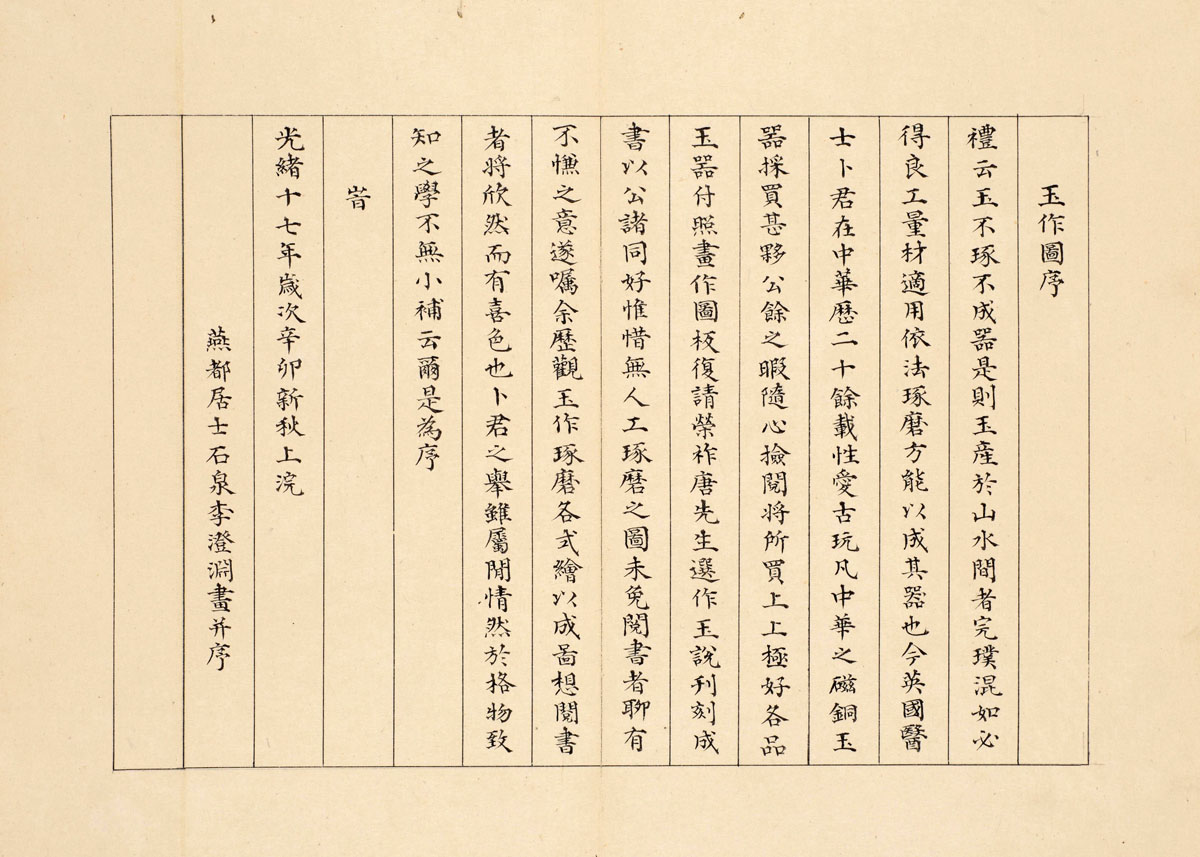 玉作圖序
禮云玉不琢不成器是則玉産於山水間者完璞混如必
得良工量材適用依法琢磨方能以成其器也今英國醫
士卜君在中華歷二十餘載性愛古玩凡中華之磁銅玉
器採買甚夥公餘之暇隨心撿閱將所買上上極好各品
玉器付照畫作圖板復請榮祚唐先生選作玉說刋刻成
書以公諸同好惟惜無人工琢磨之圖未免閱書者聊有
不慊之意遂嘱余歷觀玉作琢磨各式繪以成啚想閱書
者將欣然而有喜色也卜君之舉雖屬閒情然於格物致
知之學不無小補云爾是為序
旹
光緒十七年歲次辛卯新秋上浣
燕都居士石泉李澄淵畫并序